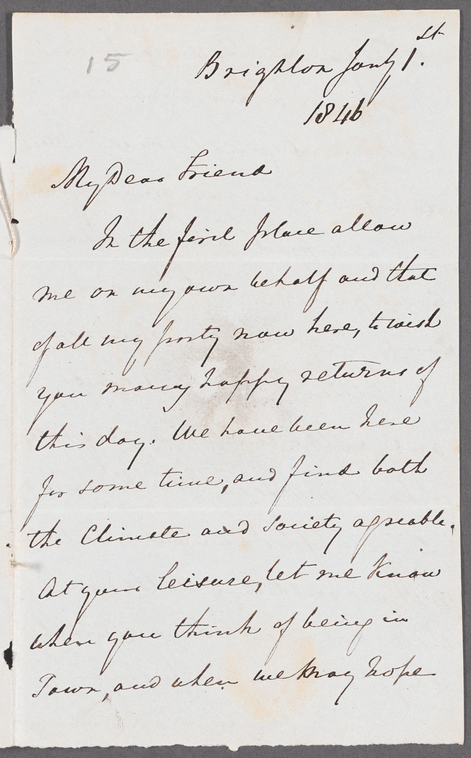 15
Brighton Jany 1.st
1846
My Dear Friend
In the first place allow
me on my own behalf and that
of all my party now here, to wish
you many happy returns of
this day. We have been here
for some time, and find both
the Climate and Society agreable.
At your leisure, let me know
when you think of being in
Town, and when we may hope